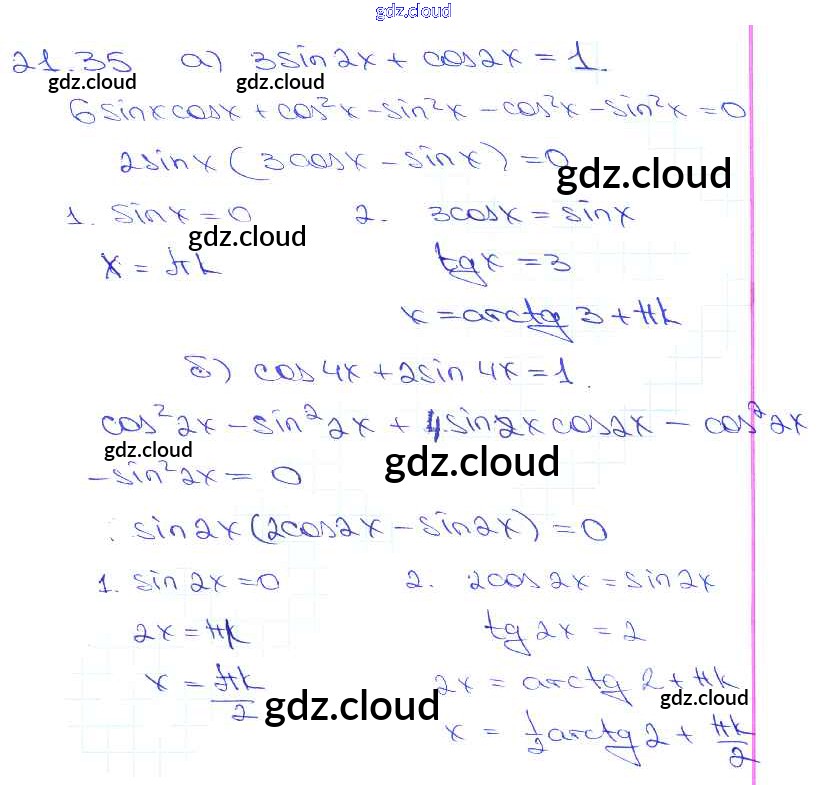 gdz.cloud
21.35 а) 3sin2x + cos2x = 1.
gdz.cloud gdz.cloud
6sinxcosx + cos²x - sin²x - cos²x - sin²x = 0
2sinx(3cosx - sinx) = 0
gdz.cloud
1. sinx = 0 2. 3cosx = sinx
gdz.cloud
x = πk tgx = 3
x = arctg 3 + πk
б) cos4x + 2sin4x = 1.
cos²2x - sin²2x + 4sin2xcos2x - cos²2x
- sin²2x = 0
gdz.cloud
sin2x(2cos2x - sin2x) = 0
1. sin2x = 0 2. 2cos2x = sin2x
2x = πk tg2x = 2
x = πk/2 2x = arctg 2 + πk
gdz.cloud gdz.cloud
x = 1/2 arctg 2 + πk/2